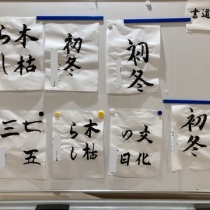 書道
初冬
初冬
木枯
らし
初冬
文化
の日
木枯
らし
七五
三